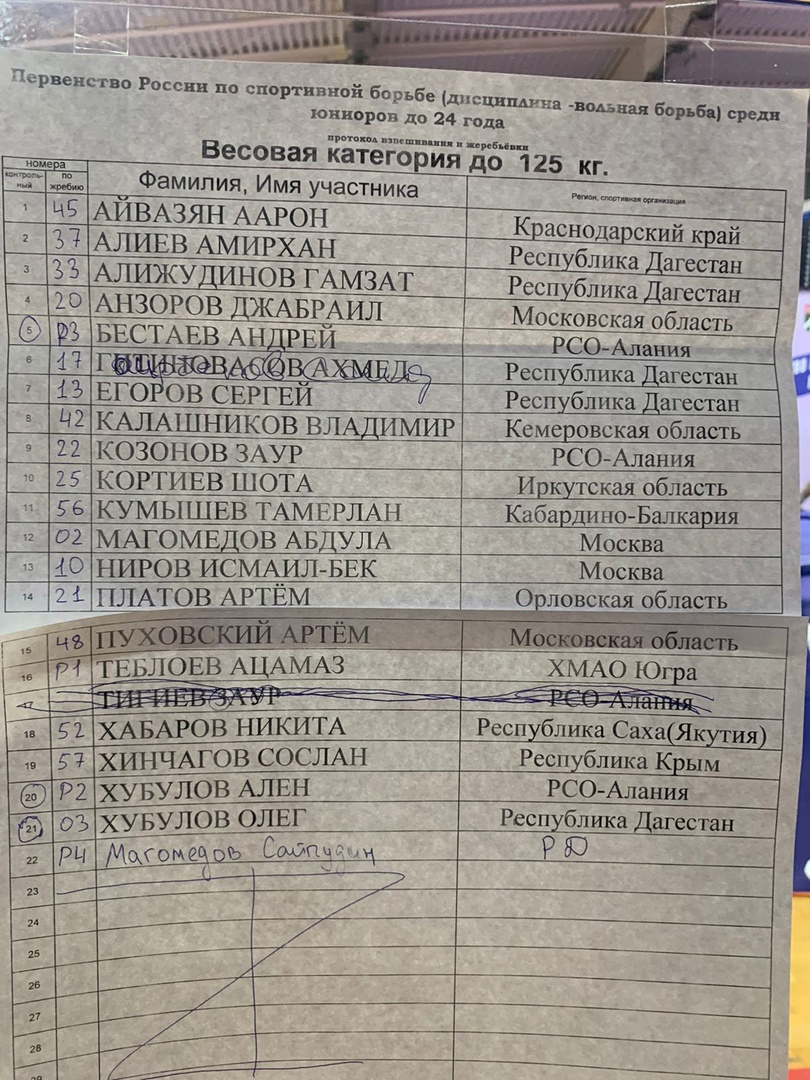 Первенство России по спортивной борьбе (дисциплина -вольная борьба) среди
юниоров до 24 года
протокол взвешивания и жеребьёвки
Весовая категория до 125 кг.
номера
контроль-ный по жребию Фамилия, Имя участника Регион, спортивная организация
1 45 АЙВАЗЯН ААРОН Краснодарский край
2 37 АЛИЕВ АМИРХАН Республика Дагестан
3 33 АЛИЖУДИНОВ ГАМЗАТ Республика Дагестан
4 20 АНЗОРОВ ДЖАБРАИЛ Московская область
5 Р3 БЕСТАЕВ АНДРЕЙ РСО-Алания
6 17 АХМЕД Республика Дагестан
7 13 ЕГОРОВ СЕРГЕЙ Республика Дагестан
8 42 КАЛАШНИКОВ ВЛАДИМИР Кемеровская область
9 22 КОЗОНОВ ЗАУР РСО-Алания
10 25 КОРТИЕВ ШОТА Иркутская область
11 56 КУМЫШЕВ ТАМЕРЛАН Кабардино-Балкария
12 02 МАГОМЕДОВ АБДУЛА Москва
13 10 НИРОВ ИСМАИЛ-БЕК Москва
14 21 ПЛАТОВ АРТЁМ Орловская область
15 48 ПУХОВСКИЙ АРТЁМ Московская область
16 Р1 ТЕБЛОЕВ АЦАМАЗ ХМАО Югра
17 ТИГИЕВ ЗАУР РСО-Алания
18 52 ХАБАРОВ НИКИТА Республика Саха(Якутия)
19 57 ХИНЧАГОВ СОСЛАН Республика Крым
20 Р2 ХУБУЛОВ АЛЕН РСО-Алания
21 03 ХУБУЛОВ ОЛЕГ Республика Дагестан
22 Р4 Магомедов Сайпудин РД
23
24
25
26
27
28
29